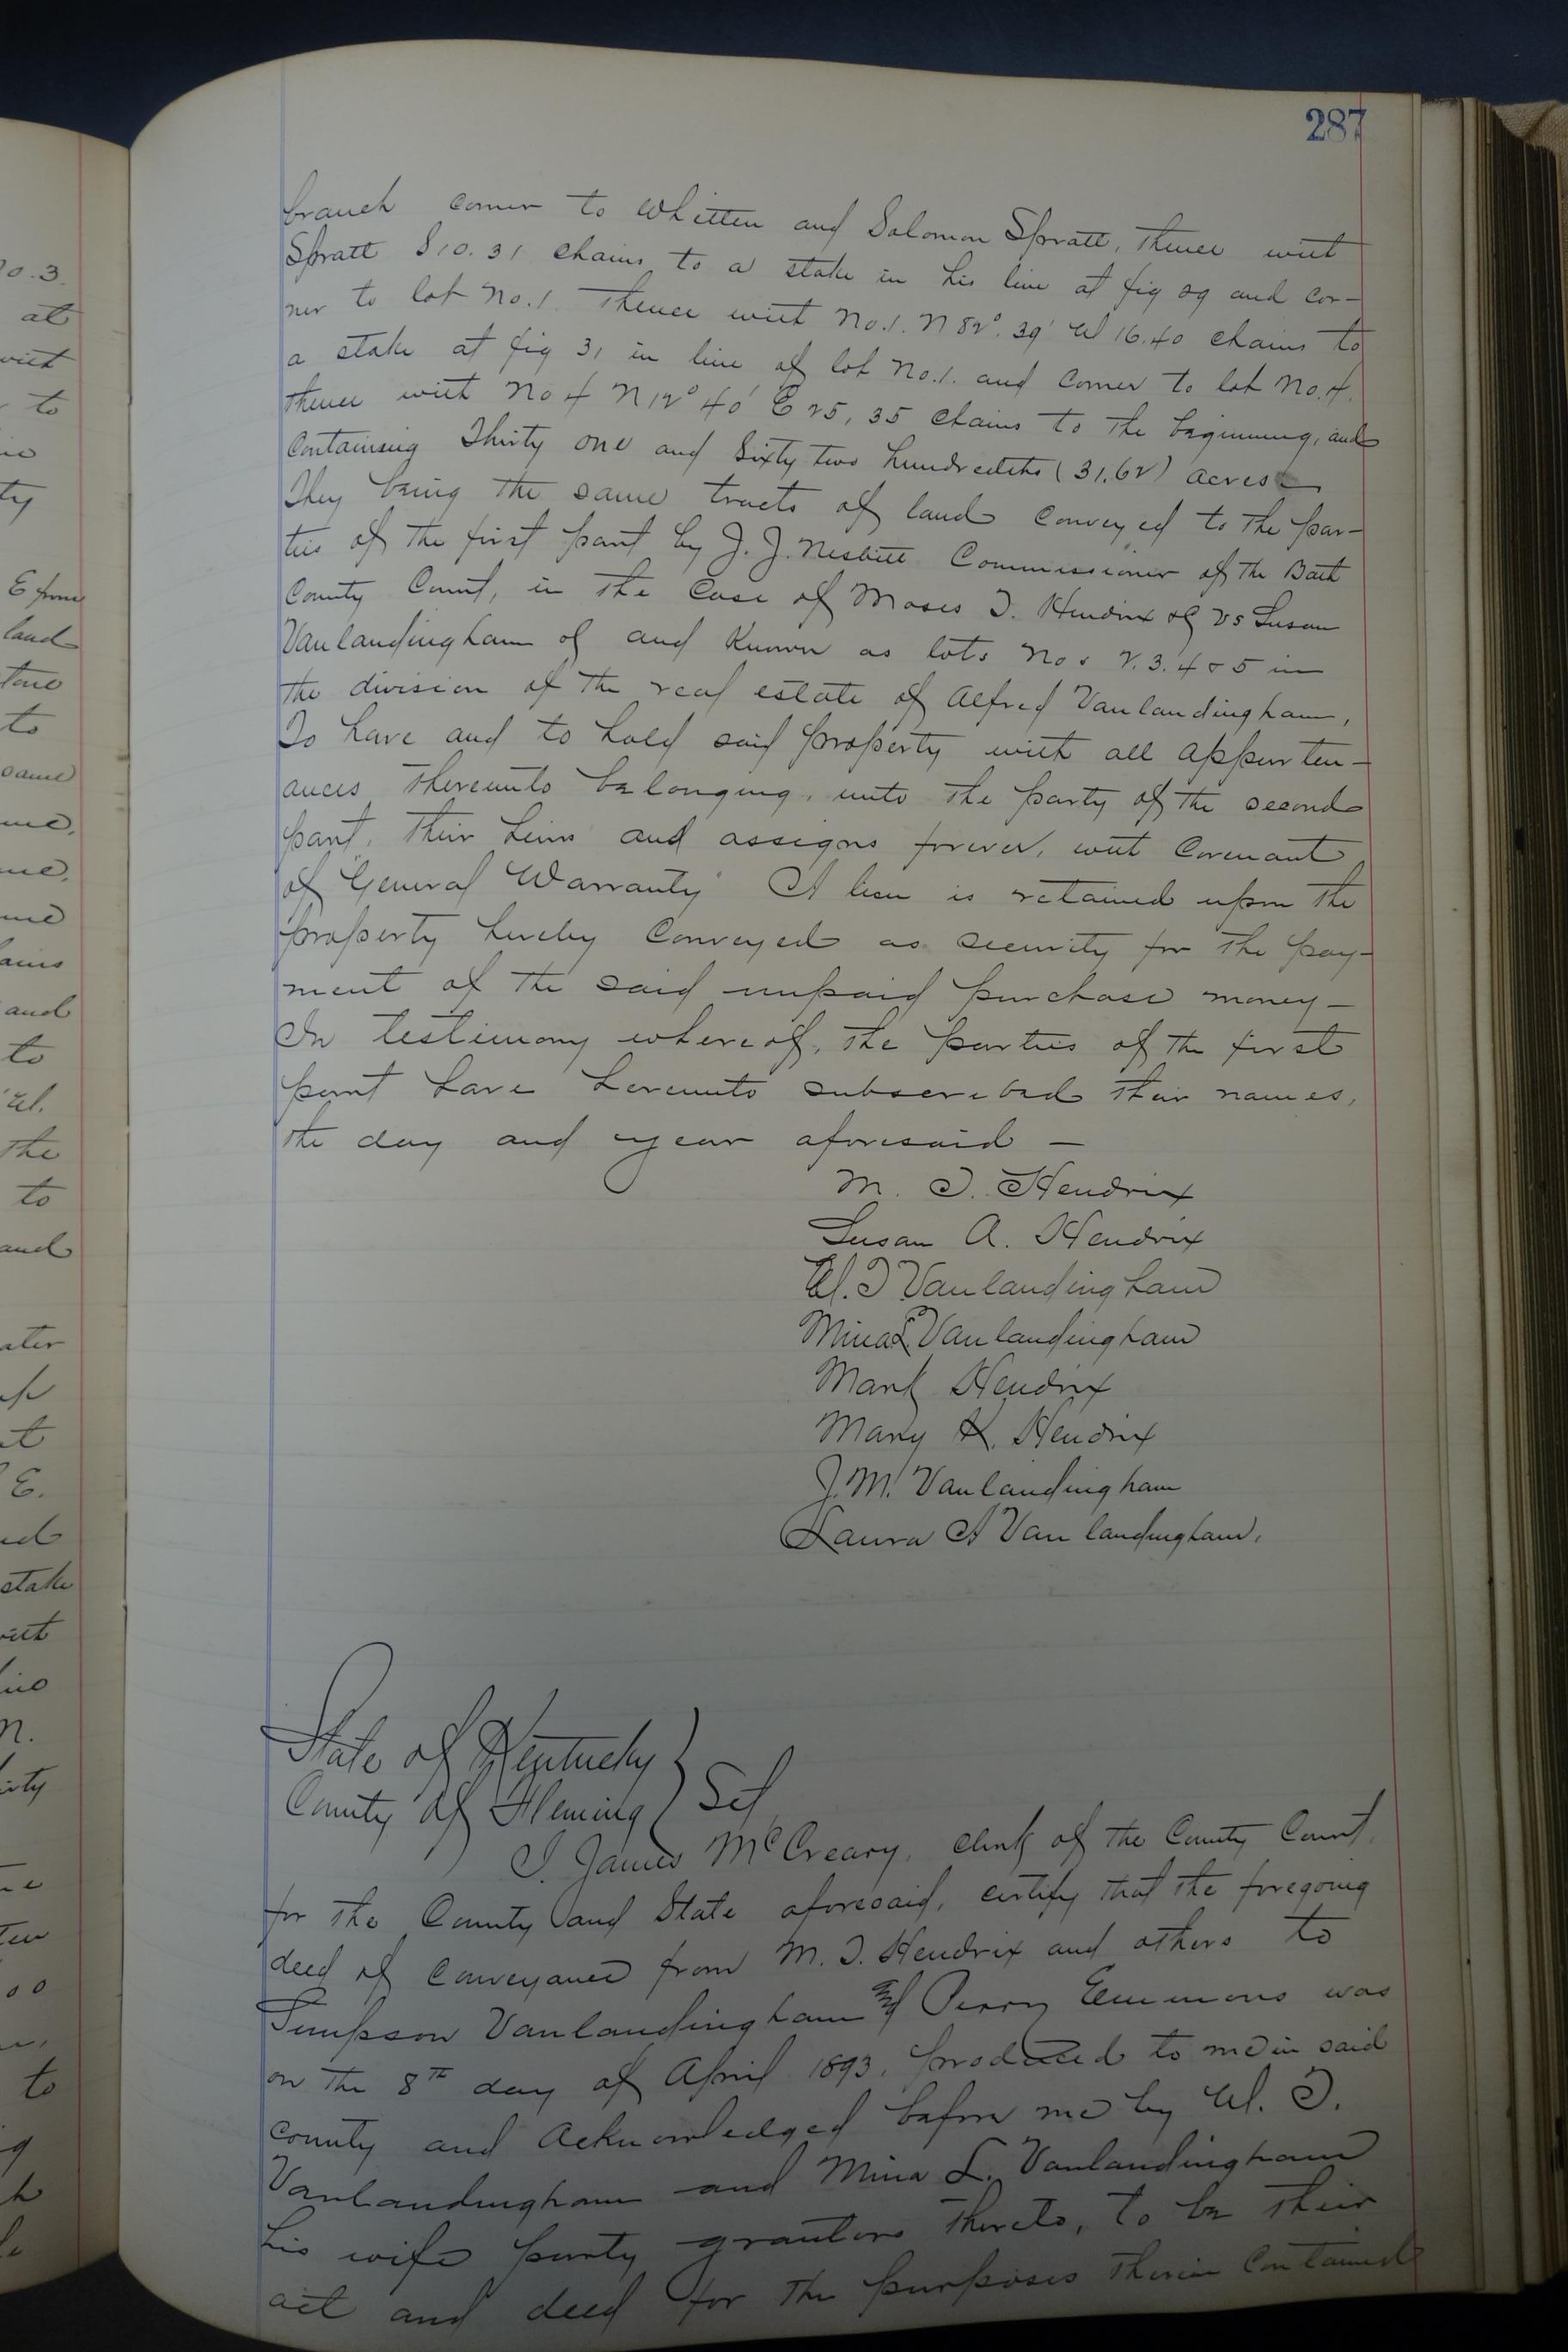 287
branch corner to Whitten and Solomon Spratt, Thence with
Spratt S 10. 31 chains to a stake in his line at fig 29 and cor-
ner to lot No. 1. Thence with No. 1. N 82° 39' W 16.40 chains to
a stake at fig 31 in line of lot No. 1. and corner to lot No. 4.
Thence with No 4 N 12° 40' E 25,35 chains to the beginning, and
Containing Thirty one and Sixty two hundredths (31.62) acres
They being the same tracts of land conveyed to the par-
ties of the first part by J. J. Nesbitt Commissioner of the Bath
County Court, in the Case of Moses T. Hendrix &c vs Susan
Vanlandingham &c and Known as lots Nos 2. 3. 4 & 5 in
the division of the real estate of Alfred Vanlandingham,
To have and to hold said property with all appurten-
ances thereunto belonging, unto the party of the second
part, their heirs and assigns forever, with Covenant
of "General Warranty" A lien is retained upon the
property hereby Conveyed as security for the pay-
ment of the said unpaid purchase money-
In testimony whereof, the parties of the first
part have hereunto subscribed their names,
the day and year aforesaid -
M. T. Hendrix
Susan A. Hendrix
W. T Vanlandingham
Mina L. Vanlandingham
Mark Hendrix
Mary K. Hendrix
J. M. Vanlandingham
Laura A Vanlandingham,
State of Kentucky }
County of Fleming } Sct
I. James McCreary, clerk of the County Court,
for the County and State aforesaid, certify that the foregoing
deed of Conveyance from M. T. Hendrix and others to
Simpson Vanlandingham and Perry Emmons was
on the 8th day of April 1893. produced to me in said
county and Acknowledged before me by W. T.
Vanlandingham and Mina L. Vanlandingham
his wife party grantors thereto, to be their
act and deed for the purposes therein Contained